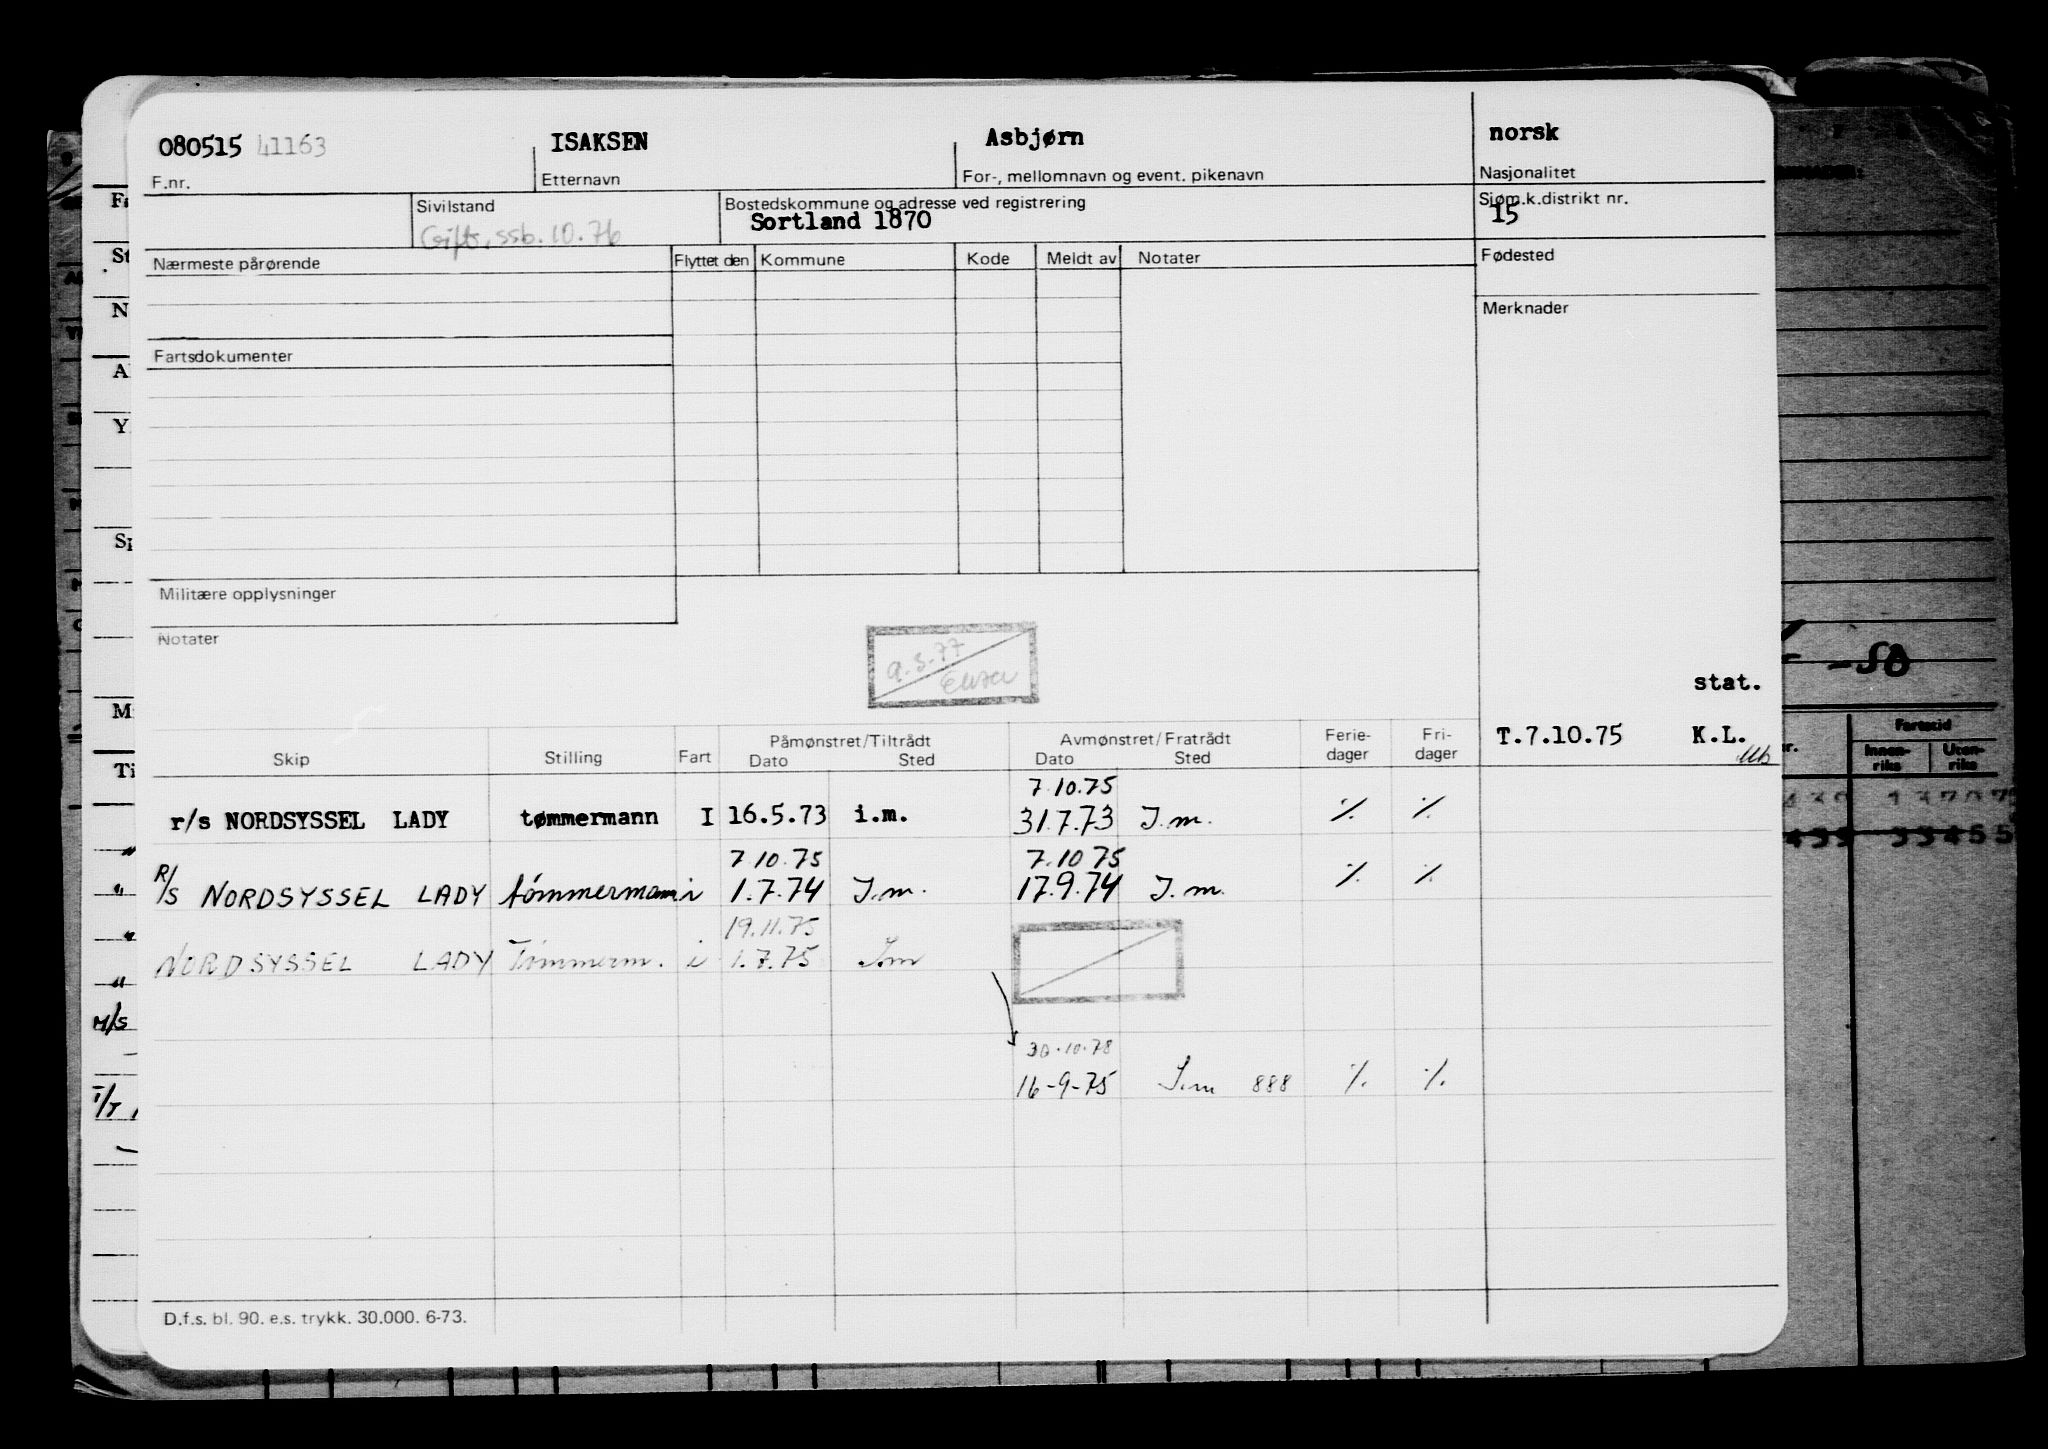 080515 41163 ISAKSEN Asbjørn norsk
F.nr. Etternavn For-, mellomnavn og event. pikenavn Nasjonalitet
Sivilstand Bostedskommune og adresse ved registrering Sjøm.k.distrikt nr.
Gift, ssb. 10.76 Sortland 1870 15
Nærmeste pårørende Flyttet den Kommune Kode Meldt av Notater Fødested
Merknader
Fartsdokumenter
Militære opplysninger
Notater
9.3.77
stat.
T.7.10.75 K.L.
Skip Stilling Fart Påmønstret/Tiltrådt Avmønstret/Fratrådt Ferie- Fri-
Dato Sted Dato Sted dager dager
7.10.75
r/s NORDSYSSEL LADY tømmermann I 16.5.73 i.m. 31.7.73 I.m. ⁒ ⁒
7.10.75 7.10.75
R/S NORDSYSSEL LADY tømmermann i 1.7.74 I.m. 17.9.74 I.m. ⁒ ⁒
19.11.75
NORDSYSSEL LADY Tømmerm. i 1.7.75 I.m
30.10.78
16-9-75 I.m 888 ⁒ ⁒
D.f.s. bl. 90. e.s. trykk. 30.000. 6-73.
-50
Fartstid
Innen-
riks
Uten-
riks
M/S
T/T